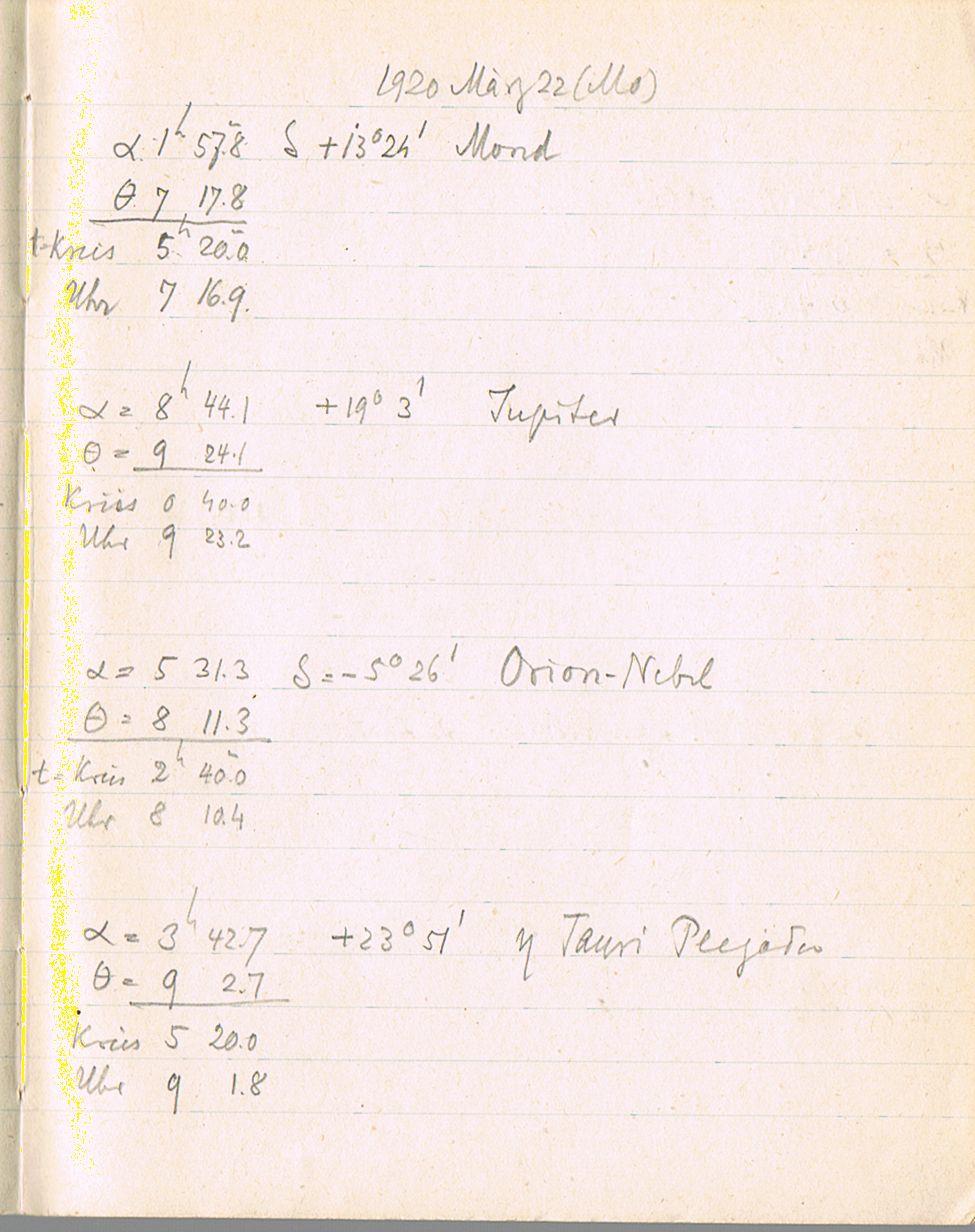 1920 März 22 (Mo)
α 1ʰ 57.ᵐ8 δ +13°24' Mond
θ 7 17.8
t=Kreis 5ʰ 20.ᵐ0
Uhr 7 16.9
α = 8ʰ 44.1 +19° 3' Jupiter
θ = 9 24.1
Kreis 0 40.0
Uhr 9 23.2
α = 5 31.3 δ = -5° 26' Orion-Nebel
θ = 8 11.3
t = Kreis 2ʰ 40.ᵐ0
Uhr 8 10.4
α = 3ʰ 42.7 +23° 51' η Tauri Plejaden
θ = 9 2.7
Kreis 5 20.0
Uhr 9 1.8